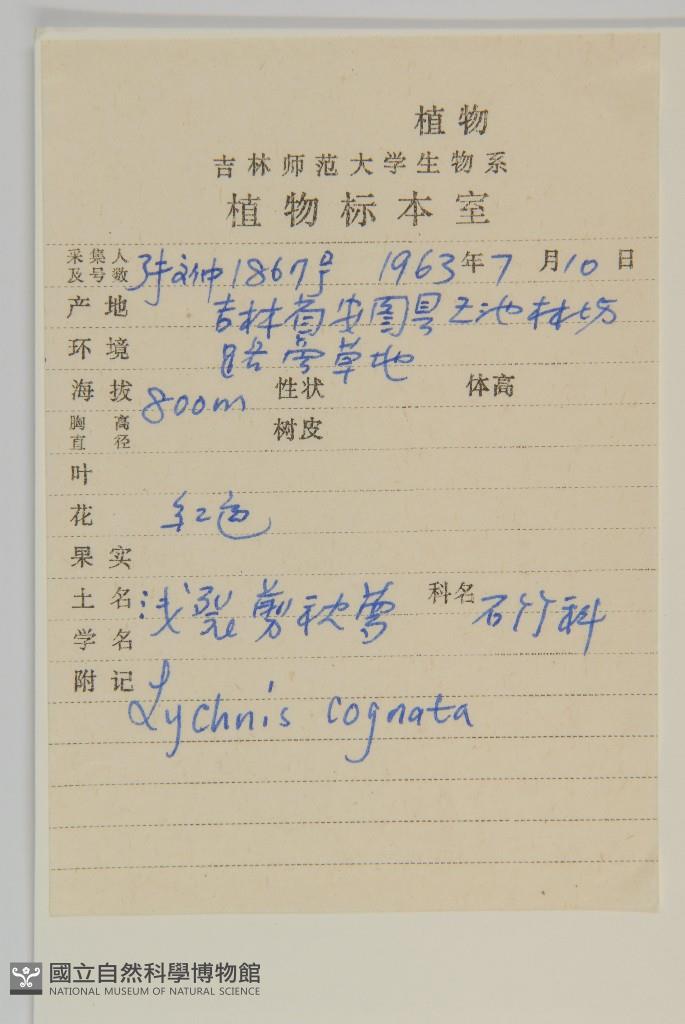 植物
吉林师范大学生物系
植物标本室
采集人及号数 张文仲 1867号 1963年7月10日
产地 吉林省安图县 池林场
环境 路旁草地
海拔 800m 性状 体高
胸高直径 树皮
叶
花 红色
果实
土名 浅裂剪秋萝 科名 石竹科
学名
附记
Lychnis cognata
國立自然科學博物館
NATIONAL MUSEUM OF NATURAL SCIENCE